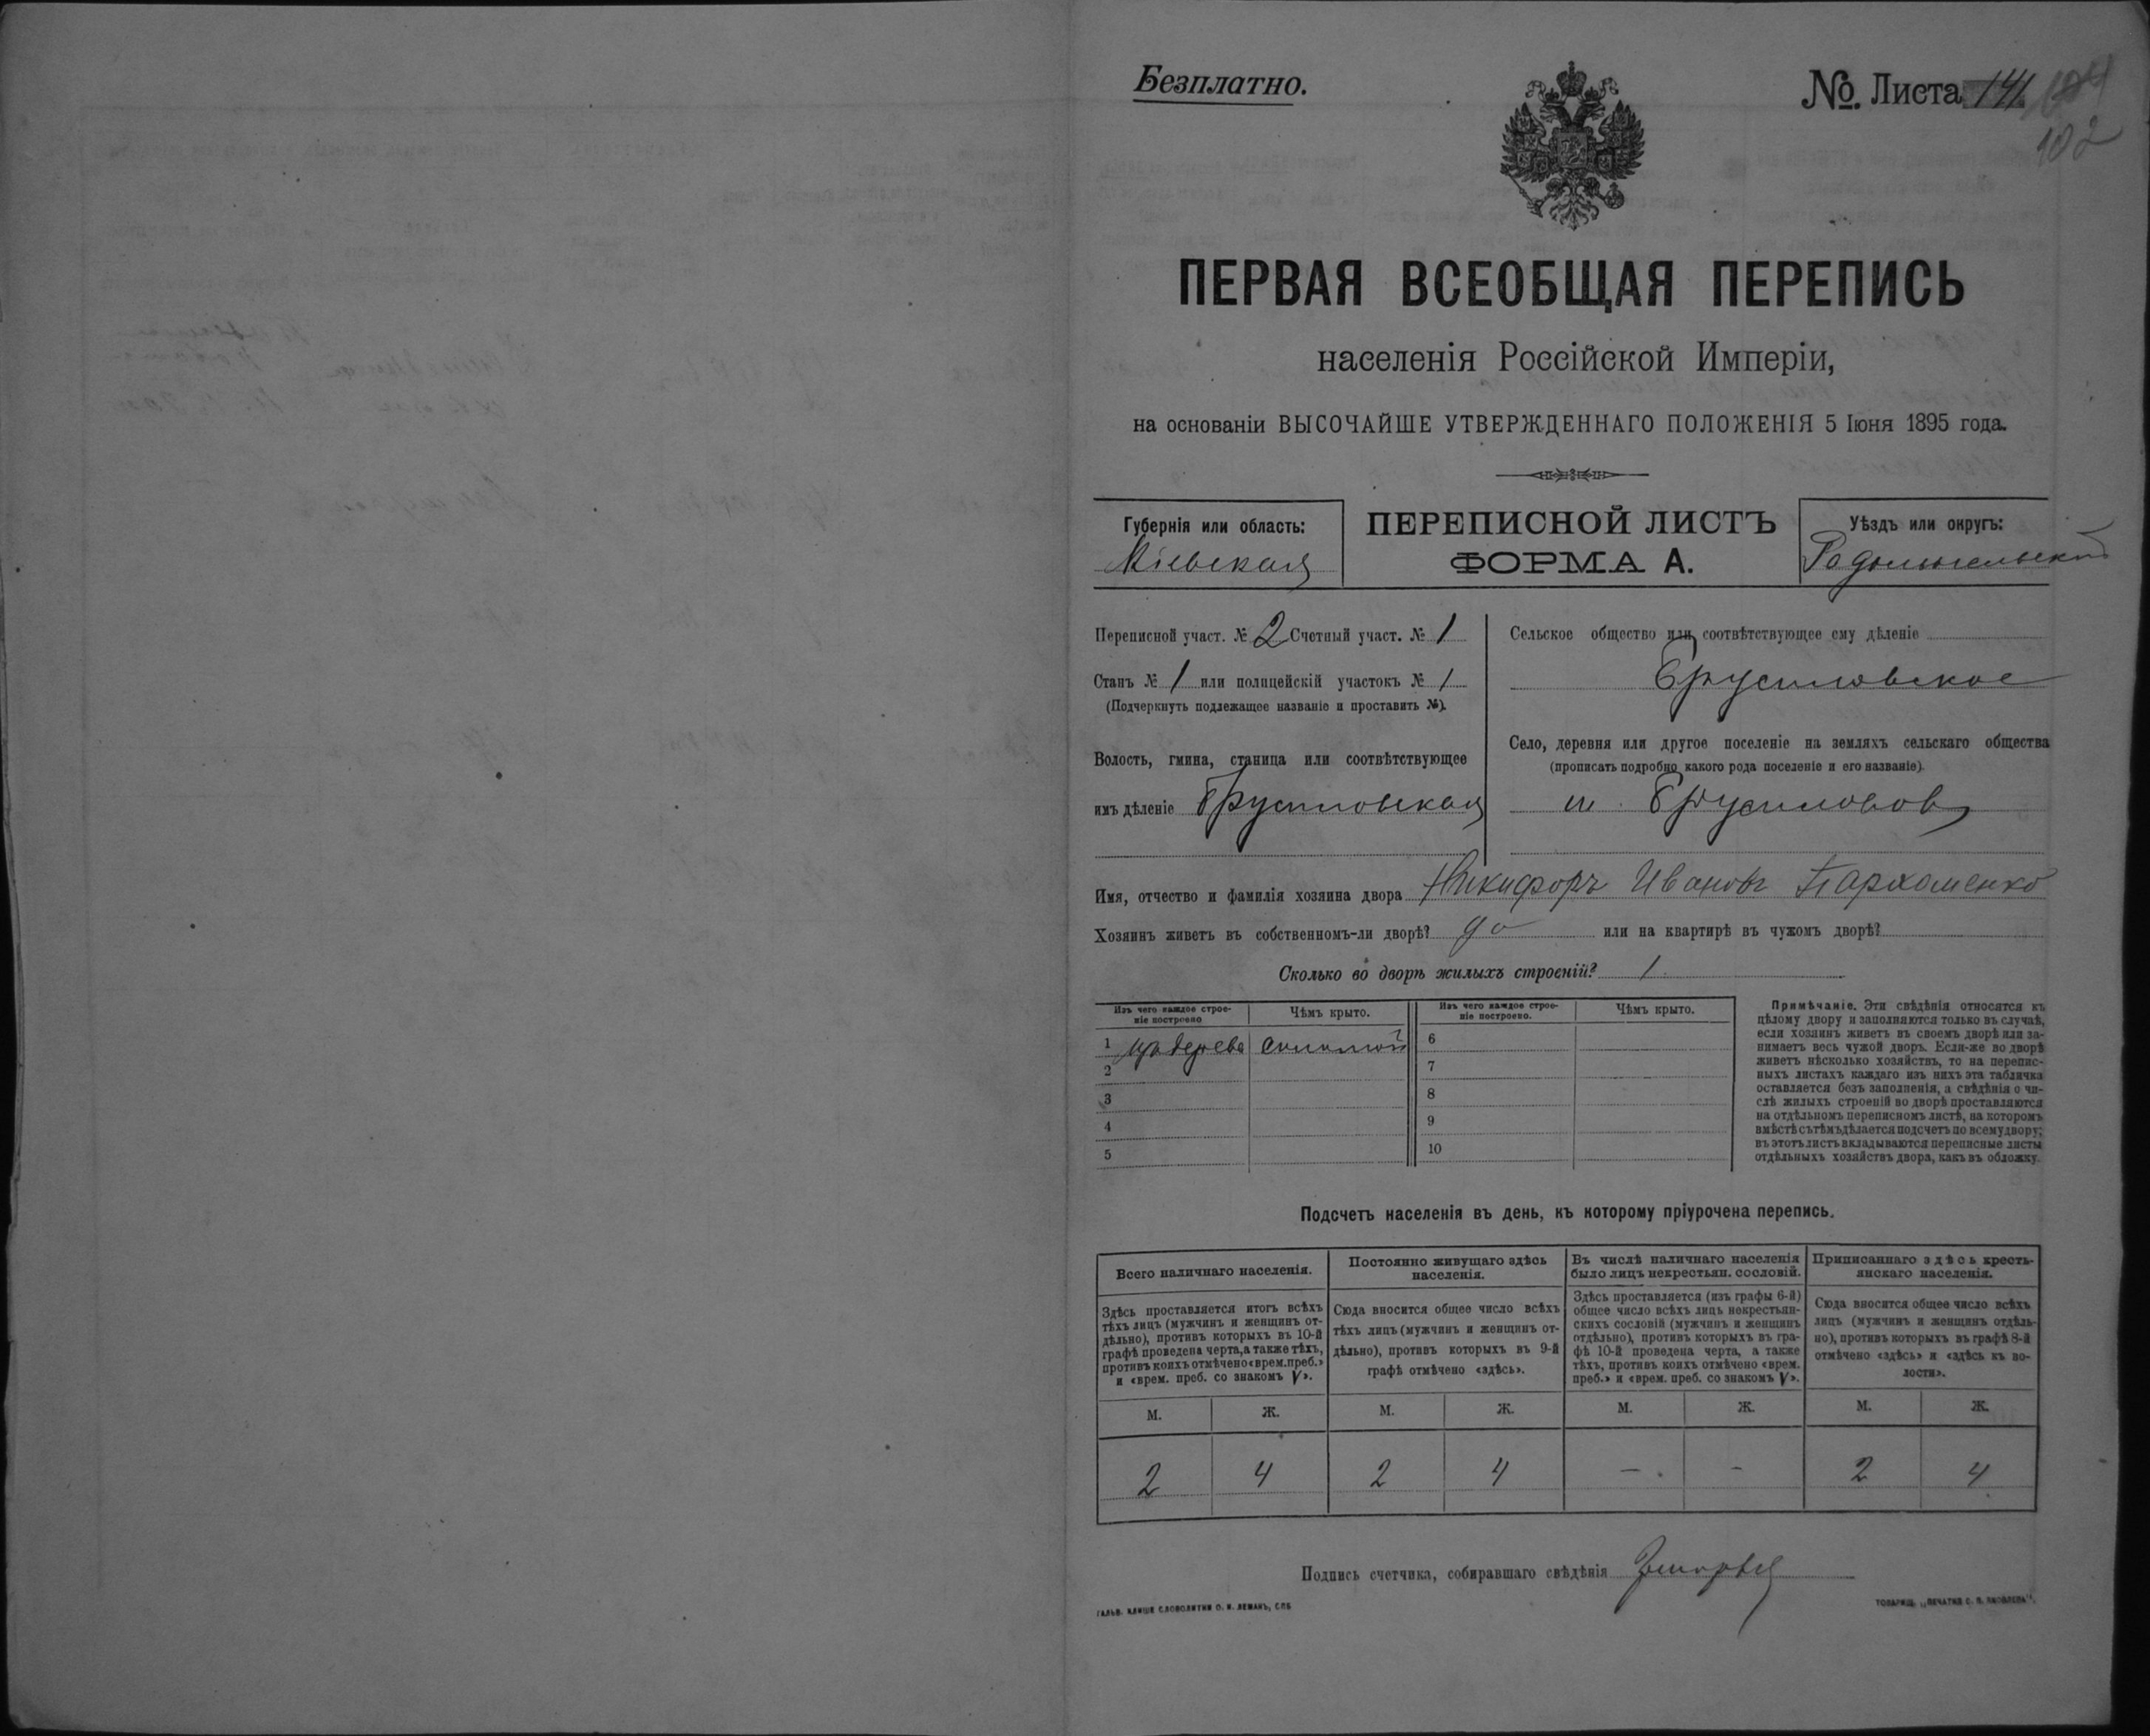 Безплатно.
№. Листа 141.
102
ПЕРВАЯ ВСЕОБЩАЯ ПЕРЕПИСЬ
населенія Россійской Имперіи,
на основаніи ВЫСОЧАЙШЕ УТВЕРЖДЕННАГО ПОЛОЖЕНІЯ 5 Іюня 1895 года.
Губернія или область:
Кіевская
ПЕРЕПИСНОЙ ЛИСТЪ
ФОРМА А.
Уѣздъ или округъ:
Радомысльскій
Переписной участ. № 2 Счетный участ. № 1
Станъ № 1 или полицейскій участокъ № 1
(Подчеркнуть подлежащее названіе и проставить №).
Волость, гмина, станица или соотвѣтствующее
имъ дѣленіе Брусиловская
Сельское общество или соотвѣтствующее ему дѣленіе
Брусиловское
Село, деревня или другое поселеніе на земляхъ сельскаго общества
(прописать подробно какого рода поселеніе и его названіе).
м. Брусиловъ
Имя, отчество и фамилія хозяина двора Никифоръ Ивановъ Пархоменко
Хозяинъ живетъ въ собственномъ-ли дворѣ? да или на квартирѣ въ чужомъ дворѣ?
Сколько во дворѣ жилыхъ строеній? 1
Изъ чего каждое строе-
ніе построено
Чѣмъ крыто.
Изъ чего каждое строе-
ніе построено.
Чѣмъ крыто.
1 изъ дерева соломой 6
2 7
3 8
4 9
5 10
Примѣчаніе. Эти свѣдѣнія относятся къ
цѣлому двору и заполняются только въ случаѣ,
если хозяинъ живетъ въ своемъ дворѣ или за-
нимаетъ весь чужой дворъ. Если-же во дворѣ
живетъ нѣсколько хозяйствъ, то на перепис-
ныхъ листахъ каждаго изъ нихъ эта табличка
оставляется безъ заполненія, а свѣдѣнія о чи-
слѣ жилыхъ строеній во дворѣ проставляются
на отдѣльномъ переписномъ листѣ, на которомъ
вмѣстѣ съ тѣмъ дѣлается подсчетъ по всему двору;
въ этотъ листъ вкладываются переписные листы
отдѣльныхъ хозяйствъ двора, какъ въ обложку.
Подсчетъ населенія въ день, къ которому пріурочена перепись.
Всего наличнаго населенія.
Здѣсь проставляется итогъ всѣхъ
тѣхъ лицъ (мужчинъ и женщинъ от-
дѣльно), противъ которыхъ въ 10-й
графѣ проведена черта, а также тѣхъ,
противъ коихъ отмѣчено «врем. преб.»
и «врем. преб. со знакомъ V».
Постоянно живущаго здѣсь
населенія.
Сюда вносится общее число всѣхъ
тѣхъ лицъ (мужчинъ и женщинъ от-
дѣльно), противъ которыхъ въ 9-й
графѣ отмѣчено «здѣсь».
Въ числѣ наличнаго населенія
было лицъ некрестьян. сословій.
Здѣсь проставляется (изъ графы 6-й)
общее число всѣхъ лицъ некрестьян-
скихъ сословій (мужчинъ и женщинъ
отдѣльно), противъ которыхъ въ гра-
фѣ 10-й проведена черта, а также
тѣхъ, противъ коихъ отмѣчено «врем.
преб.» и «врем. преб. со знакомъ V».
Приписаннаго здѣсь кресть-
янскаго населенія.
Сюда вносится общее число всѣхъ
лицъ (мужчинъ и женщинъ отдѣль-
но), противъ которыхъ въ графѣ 8-й
отмѣчено «здѣсь» и «здѣсь къ во-
лости».
М. Ж. М. Ж. М. Ж. М. Ж.
2 4 2 4 — — 2 4
Подпись счетчика, собиравшаго свѣдѣнія
ГАЛЬВ. КЛИШЕ СЛОВОЛИТНИ О. И. ЛЕМАНЪ, СПБ
ТОВАРИЩ. „ПЕЧАТНЯ С. П. ЯКОВЛЕВА".